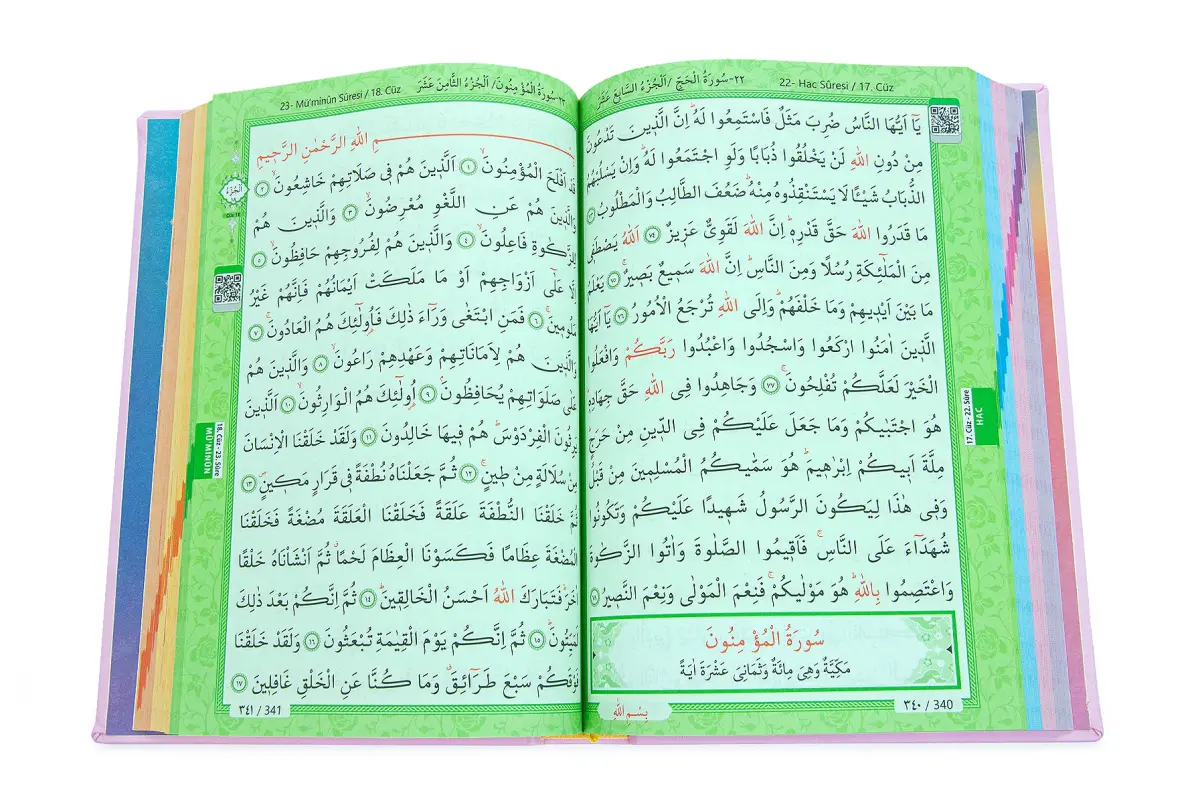 ٢٢-سُورَةُ الْحَجِّ /اَلْجُزْءُ السَّابِعَ عَشَرَ
22- Hac Sûresi / 17. Cüz
يَٓا اَيُّهَا النَّاسُ ضُرِبَ مَثَلٌ فَاسْتَمِعُوا لَهُۜ اِنَّ الَّذ۪ينَ تَدْعُونَ
مِنْ دُونِ اللّٰهِ لَنْ يَخْلُقُوا ذُبَابًا وَلَوِ اجْتَمَعُوا لَهُۜ وَاِنْ يَسْلُبْهُمُ
الذُّبَابُ شَيْـًٔا لَا يَسْتَنْقِذُوهُ مِنْهُۜ ضَعُفَ الطَّالِبُ وَالْمَطْلُوبُ ﴿٧٣﴾
مَا قَدَرُوا اللّٰهَ حَقَّ قَدْرِه۪ۜ اِنَّ اللّٰهَ لَقَوِيٌّ عَز۪يزٌ ﴿٧٤﴾ اَللّٰهُ يَصْطَف۪ي
مِنَ الْمَلٰٓئِكَةِ رُسُلًا وَمِنَ النَّاسِۜ اِنَّ اللّٰهَ سَم۪يعٌ بَص۪يرٌۚ ﴿٧٥﴾ يَعْلَمُ
مَا بَيْنَ اَيْد۪يهِمْ وَمَا خَلْفَهُمْۜ وَاِلَى اللّٰهِ تُرْجَعُ الْاُمُورُ ﴿٧٦﴾ يَٓا اَيُّهَا
الَّذ۪ينَ اٰمَنُوا ارْكَعُوا وَاسْجُدُوا وَاعْبُدُوا رَبَّكُمْ وَافْعَلُوا
الْخَيْرَ لَعَلَّكُمْ تُفْلِحُونَۚ ﴿٧٧﴾ وَجَاهِدُوا فِي اللّٰهِ حَقَّ جِهَادِه۪ۜ
هُوَ اجْتَبٰيكُمْ وَمَا جَعَلَ عَلَيْكُمْ فِي الدّ۪ينِ مِنْ حَرَجٍۜ
مِلَّةَ اَب۪يكُمْ اِبْرٰه۪يمَۜ هُوَ سَمّٰيكُمُ الْمُسْلِم۪ينَ مِنْ قَبْلُ
وَف۪ي هٰذَا لِيَكُونَ الرَّسُولُ شَه۪يدًا عَلَيْكُمْ وَتَكُونُوا
شُهَدَٓاءَ عَلَى النَّاسِۚ فَاَق۪يمُوا الصَّلٰوةَ وَاٰتُوا الزَّكٰوةَ
وَاعْتَصِمُوا بِاللّٰهِۜ هُوَ مَوْلٰيكُمْۚ فَنِعْمَ الْمَوْلٰى وَنِعْمَ النَّص۪يرُ ﴿٧٨﴾
سُورَةُ الْمُؤْمِنُونَ
مَكِّيَّةٌ وَهِيَ مِائَةٌ وَثَمَانِيَ عَشَرَةَ اٰيَةً
٣٤٠ / 340
بِسْمِ اللّٰهِ
17. Cüz - 22. Sûre
HAC
٢٣-سُورَةُ الْمُؤْمِنُونَ/ اَلْجُزْءُ الثَّامِنَ عَشَرَ
23- Mü'minûn Sûresi / 18. Cüz
اَلْجُزْءُ
Cüz 18
بِسْمِ اللّٰهِ الرَّحْمٰنِ الرَّح۪يمِ
قَدْ اَفْلَحَ الْمُؤْمِنُونَۙ ﴿١﴾ اَلَّذ۪ينَ هُمْ ف۪ي صَلَاتِهِمْ خَاشِعُونَۙ ﴿٢﴾
وَالَّذ۪ينَ هُمْ عَنِ اللَّغْوِ مُعْرِضُونَۙ ﴿٣﴾ وَالَّذ۪ينَ هُمْ
لِلزَّكٰوةِ فَاعِلُونَۙ ﴿٤﴾ وَالَّذ۪ينَ هُمْ لِفُرُوجِهِمْ حَافِظُونَۙ ﴿٥﴾
اِلَّا عَلٰٓى اَزْوَاجِهِمْ اَوْ مَا مَلَكَتْ اَيْمَانُهُمْ فَاِنَّهُمْ غَيْرُ
مَلُوم۪ينَۚ ﴿٦﴾ فَمَنِ ابْتَغٰى وَرَٓاءَ ذٰلِكَ فَاُو۬لٰٓئِكَ هُمُ الْعَادُونَۚ ﴿٧﴾
وَالَّذ۪ينَ هُمْ لِاَمَانَاتِهِمْ وَعَهْدِهِمْ رَاعُونَۙ ﴿٨﴾ وَالَّذ۪ينَ هُمْ
عَلٰى صَلَوَاتِهِمْ يُحَافِظُونَۢ ﴿٩﴾ اُو۬لٰٓئِكَ هُمُ الْوَارِثُونَۙ ﴿١٠﴾ اَلَّذ۪ينَ
يَرِثُونَ الْفِرْدَوْسَۜ هُمْ ف۪يهَا خَالِدُونَ ﴿١١﴾ وَلَقَدْ خَلَقْنَا الْاِنْسَانَ
مِنْ سُلَالَةٍ مِنْ ط۪ينٍۚ ﴿١٢﴾ ثُمَّ جَعَلْنَاهُ نُطْفَةً ف۪ي قَرَارٍ مَك۪ينٍۖ ﴿١٣﴾
ثُمَّ خَلَقْنَا النُّطْفَةَ عَلَقَةً فَخَلَقْنَا الْعَلَقَةَ مُضْغَةً فَخَلَقْنَا
الْمُضْغَةَ عِظَامًا فَكَسَوْنَا الْعِظَامَ لَحْمًاۗ ثُمَّ اَنْشَأْنَاهُ خَلْقًا
اٰخَرَۜ فَتَبَارَكَ اللّٰهُ اَحْسَنُ الْخَالِق۪ينَۜ ﴿١٤﴾ ثُمَّ اِنَّكُمْ بَعْدَ ذٰلِكَ
لَمَيِّتُونَۜ ﴿١٥﴾ ثُمَّ اِنَّكُمْ يَوْمَ الْقِيٰمَةِ تُبْعَثُونَ ﴿١٦﴾ وَلَقَدْ خَلَقْنَا
فَوْقَكُمْ سَبْعَ طَرَٓائِقَۗ وَمَا كُنَّا عَنِ الْخَلْقِ غَافِل۪ينَ ﴿١٧﴾
٣٤١ / 341
18. Cüz - 23. Sûre
MÜ'MİNÛN